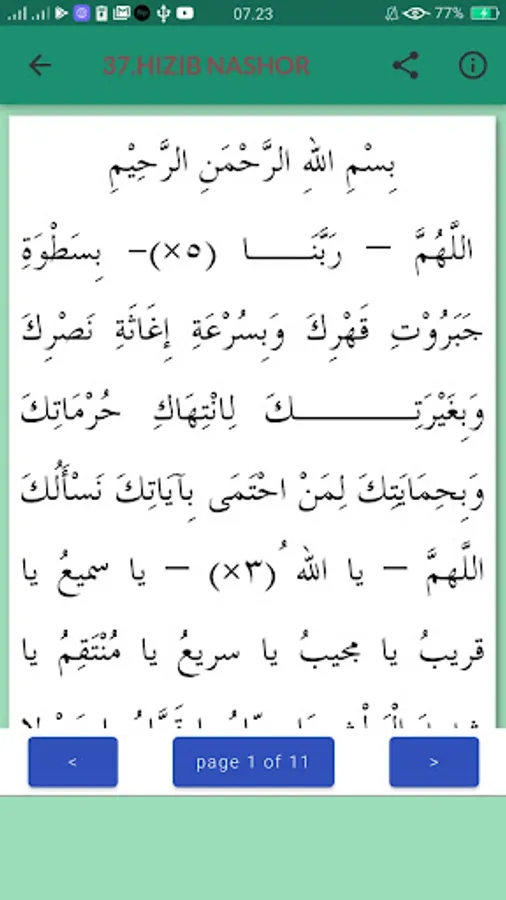 07.23
77%
37.HIZIB NASHOR
بِسْمِ اللهِ الرَّحْمَنِ الرَّحِيْمِ
اللَّهُمَّ – رَبَّنَـــــا (٥×)– بِسَطْوَةِ
جَبَرُوْتِ قَهْرِكَ وَبِسُرْعَةِ إِغَاثَةِ نَصْرِكَ
وَبِغَيْرَتِـــــــــكَ لِانْتِهَاكِ حُرْمَاتِكَ
وَبِحِمَايَتِكَ لِمَنْ احْتَمَى بِآيَاتِكَ نَسْأَلُكَ
اللَّهمَّ – يا اللهُ (٣×) – يا سميعُ يا
قريبُ يا مجيبُ يا سريعُ يا مُنْتَقِمُ يا
<
page 1 of 11
>